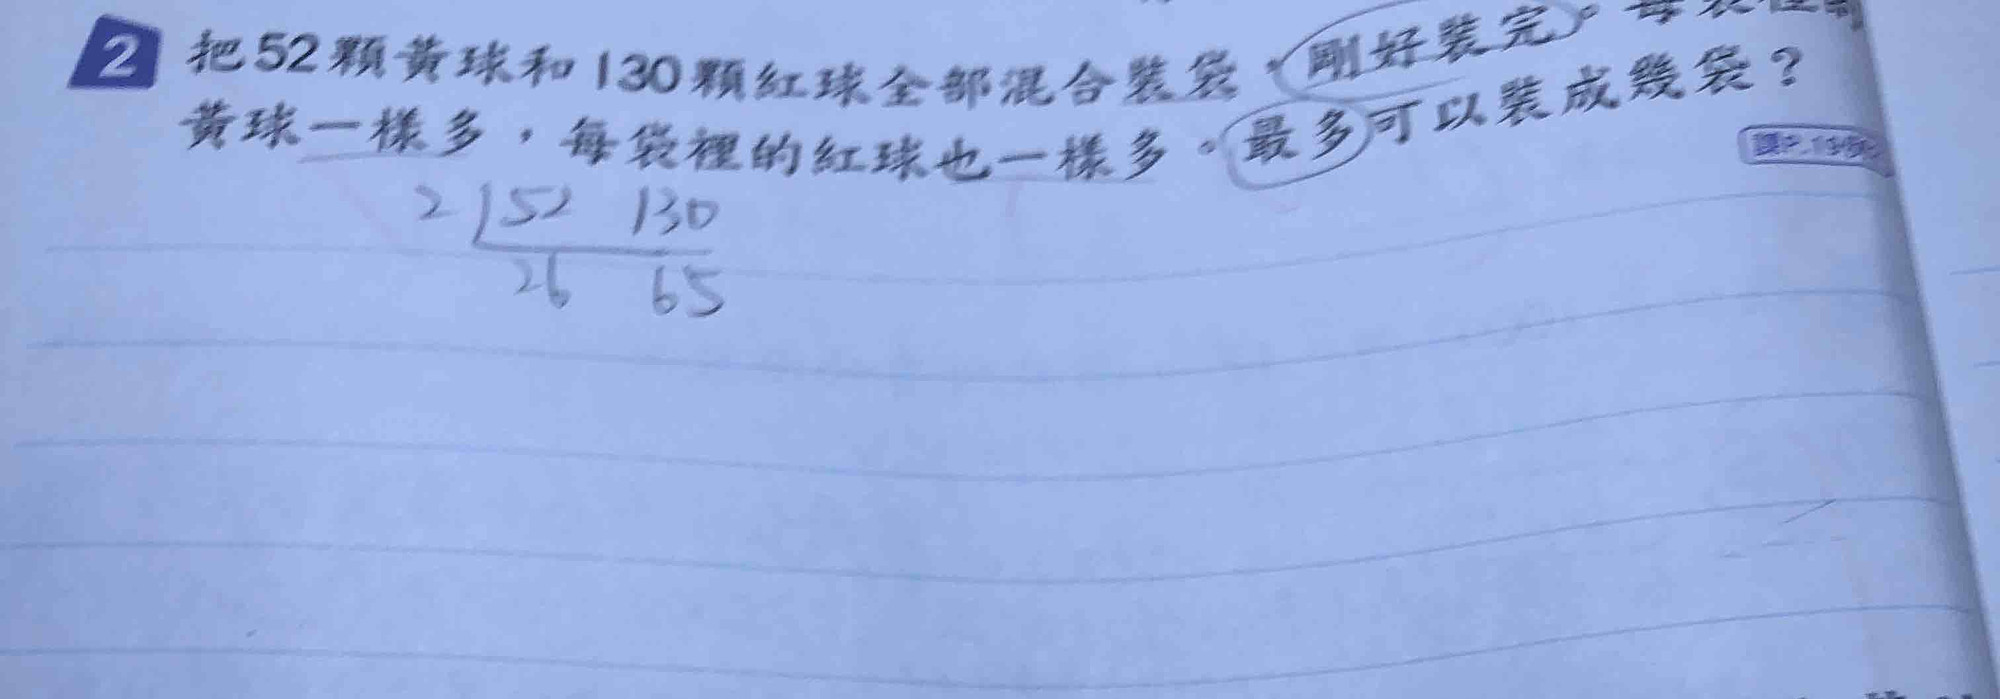 2 把52顆黃球和130顆紅球全部混合裝袋,剛好裝完。每袋裡的
黃球一樣多,每袋裡的紅球也一樣多。最多可以裝成幾袋?
課P.19
2 52 130
26 65